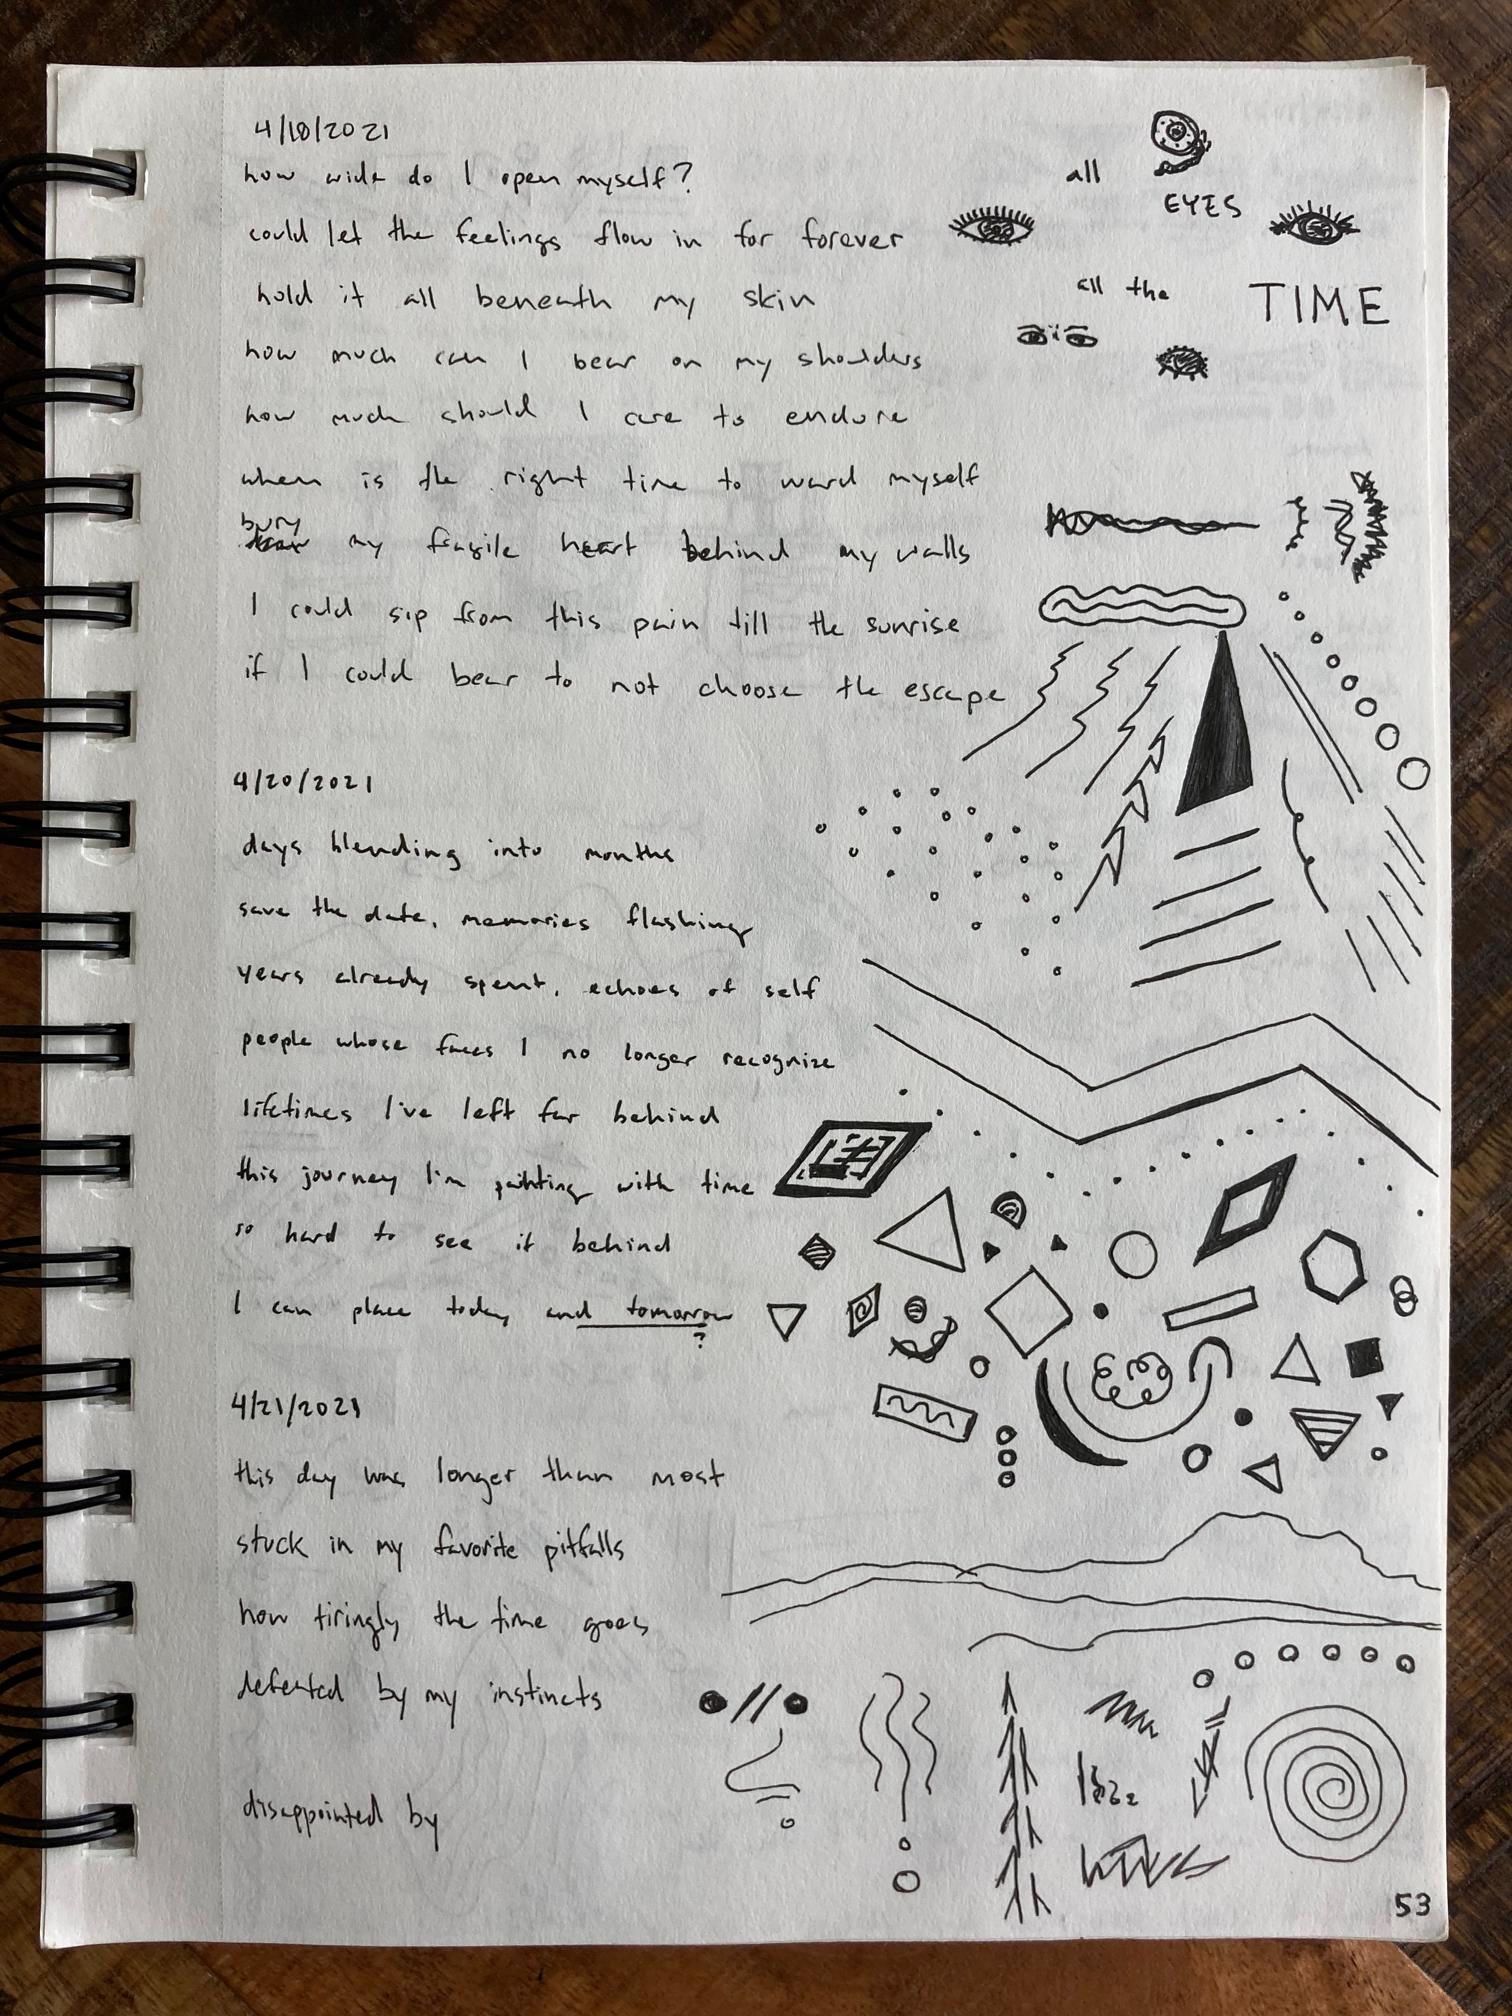 4/18/2021
how wide do I open myself?
could let the feelings flow in for forever
hold it all beneath my skin
how much can I bear on my shoulders
how much should I care to endure
when is the right time to ward myself
bury
my fragile heart behind my walls
I could sip from this pain till the sunrise
if I could bear to not choose the escape
all
EYES
all the
TIME
4/20/2021
days blending into months
save the date, memories flashing
years already spent, echoes of self
people whose faces I no longer recognize
lifetimes I've left far behind
this journey I'm painting with time
so hard to see it behind
I can place today and tomorrow
?
4/21/2021
this day was longer than most
stuck in my favorite pitfalls
how tiringly the time goes
defeated by my instincts
disappointed by
53